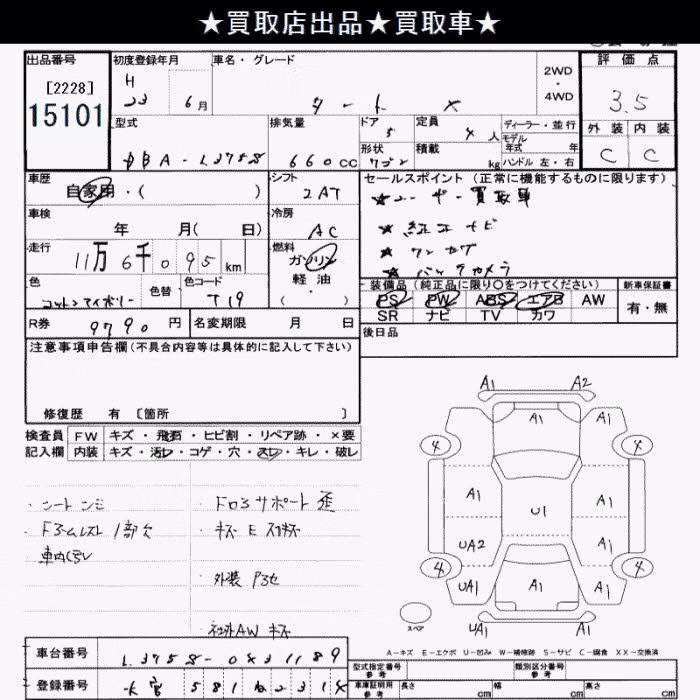 ★買取店出品★買取車★
出品番号
[2228]
15101
初度登録年月
H
23 6月
車名・グレード
タ ー ト ×
2WD
・
4WD
評価点
3.5
外装 内装
C C
型式
DBA-L375S
排気量
660cc
ドア
5
形状
ワゴン
定員
4人
積載
kg
ディーラー・並行
モデル
年式 年
ハンドル 左・右
車歴
自家用・( )
シフト
2AT
セールスポイント(正常に機能するものに限ります)
★ユーザー買取車
★純正ナビ
★ワンセグ
★バックカメラ
車検
年 月( 日)
冷房
AC
走行
11万6千095km
燃料
ガソリン
軽油
・( )
色
コットンアイボリー
色替
色コード
T19
装備品(純正品に限り〇をつけてください)
PS PW ABS エアB AW
SR ナビ TV カワ
新車保証書
有・無
R券
9790円
名変期限 月 日
後日品
注意事項申告欄(不具合内容等は具体的に記入して下さい)
修復歴 有 〔箇所 〕
検査員
記入欄
FW キズ・飛石・ヒビ割・リペア跡・×要
内装 キズ・汚レ・コゲ・穴・スレ・キレ・破レ
・シートシミ
・Fアームレスト1部欠
車内汚レ
・ドロ3サポート歪
・キズEスリキズ
外装
社外AWキズ
A1 A2
A1 A1 A1
4 4
A1 U1 A1
UA2 A1
4 4
UA1 A1 A1
UA1 A1
スペア
A-キズ E-エクボ U-凹み W-補修跡 S-サビ C-腐食 XX-交換済
車台番号
L375S-0431189
登録番号
型式指定番号
参考
類別区分番号
参考
車庫証明用
参考
長さ cm
幅 cm
高さ cm